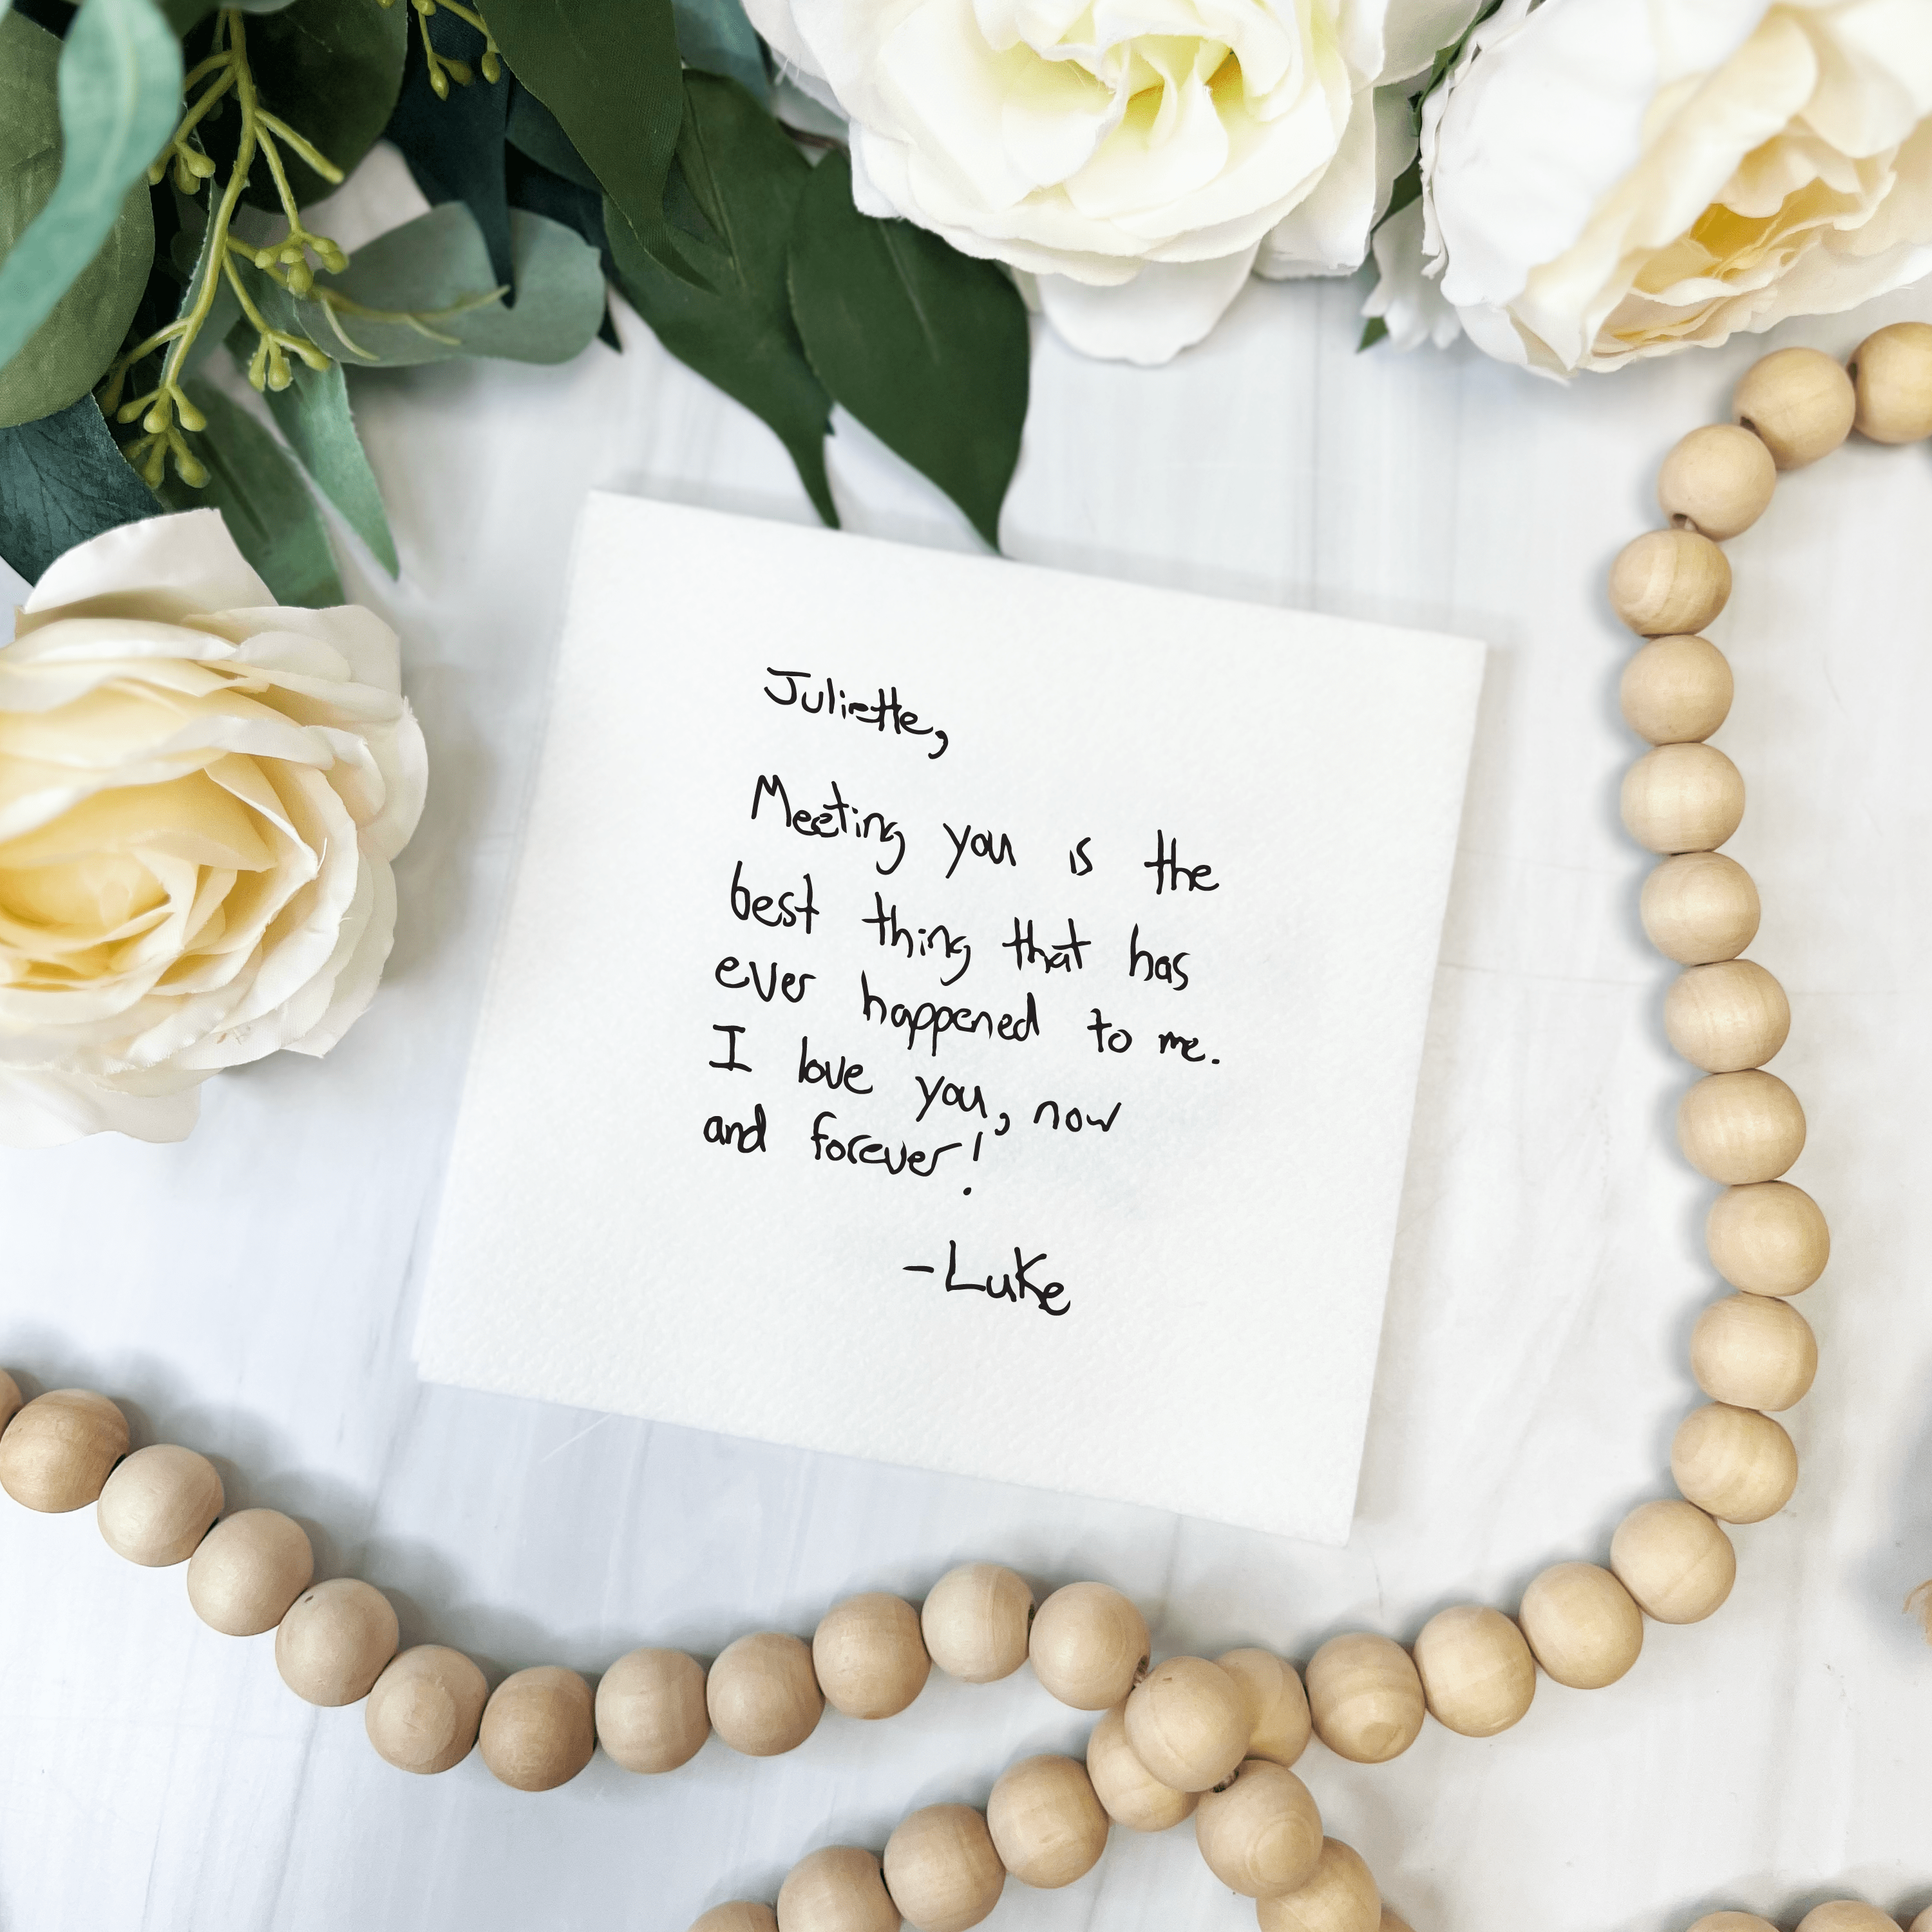 Juliette,
Meeting you is the
best thing that has
ever happened to me.
I love you, now
and forever!
-Luke